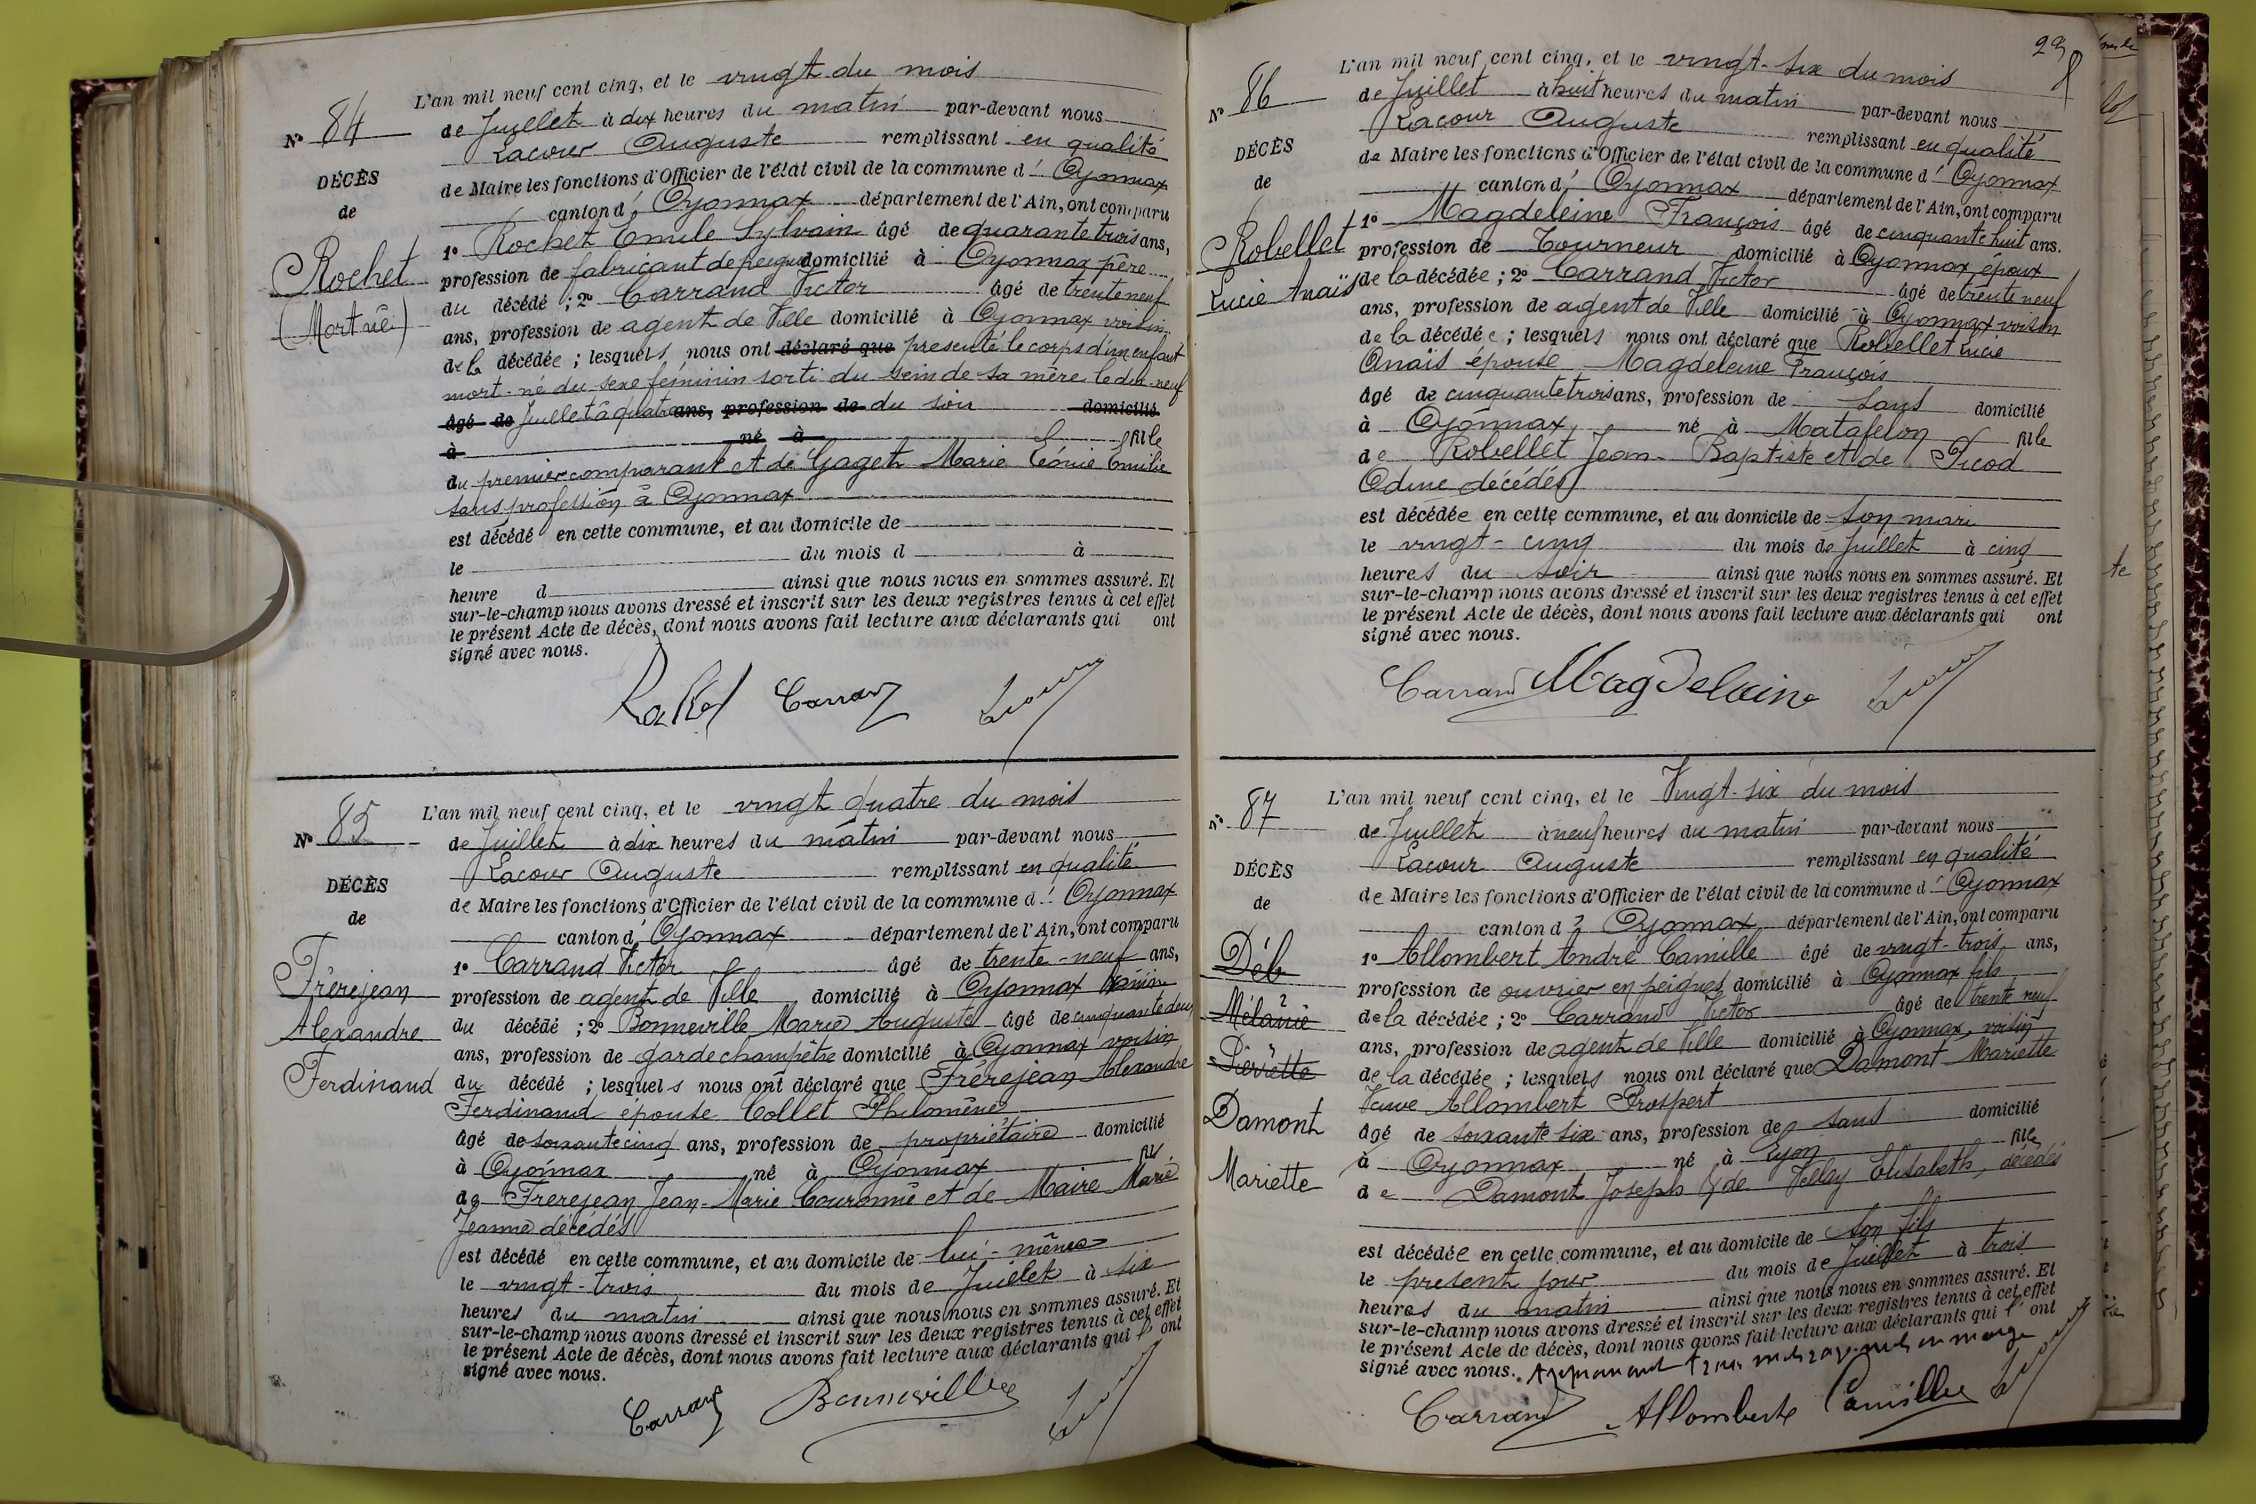 L'an mil neuf cent cinq, et le vingt du mois
N° 84
de Juillet à dix heures du matin par-devant nous
Lacour Auguste remplissant en qualité
DÉCÈS
de Maire les fonctions d'Officier de l'état civil de la commune d' Oyonnax
de
canton d' Oyonnax département de l'Ain, ont comparu
1° Rochet Emile Sylvain âgé de quarante trois ans,
Rochet
profession de fabricant de peignes domicilié à Oyonnax père
(Mort né)
du décédé ; 2° Carrand Victor âgé de trente neuf
ans, profession de agent de Ville domicilié à Oyonnax voisin
de la décédée ; lesquels nous ont déclaré que présenté le corps d'un enfant
mort-né du sexe féminin sorti du sein de sa mère le dix-neuf
âgé de Juillet à quatre ans, profession de du soir domicilié
à né à fille
du premier comparant et de Gaget Marie Léonie Emilie
sans profession à Oyonnax
est décédé en cette commune, et au domicile de
le du mois d à
heure d ainsi que nous nous en sommes assuré. Et
sur-le-champ nous avons dressé et inscrit sur les deux registres tenus à cet effet
le présent Acte de décès, dont nous avons fait lecture aux déclarants qui ont
signé avec nous.
Carrand
L'an mil neuf cent cinq, et le vingt quatre du mois
N° 85
de Juillet à dix heures du matin par-devant nous
Lacour Auguste remplissant en qualité
DÉCÈS
de Maire les fonctions d'Officier de l'état civil de la commune d' Oyonnax
de
canton d' Oyonnax département de l'Ain, ont comparu
1° Carrand Victor âgé de trente-neuf ans,
Frèrejean
profession de agent de Ville domicilié à Oyonnax voisin
Alexandre
du décédé ; 2° Bonneville Marie Auguste âgé de cinquante deux
ans, profession de garde champêtre domicilié à Oyonnax voisin
Ferdinand
du décédé ; lesquels nous ont déclaré que Frèrejean Alexandre
Ferdinand épouse Collet Philomène
âgé de soixante cinq ans, profession de propriétaire domicilié
à Oyonnax né à Oyonnax fils
de Frèrejean Jean-Marie Couronné et de Maire Marie
Jeanne décédés
est décédé en cette commune, et au domicile de lui-même
le vingt-trois du mois de Juillet à six
heures du matin ainsi que nous nous en sommes assuré. Et
sur-le-champ nous avons dressé et inscrit sur les deux registres tenus à cet effet
le présent Acte de décès, dont nous avons fait lecture aux déclarants qui l' ont
signé avec nous.
Carrand Bonneville
L'an mil neuf cent cinq, et le vingt-six du mois
N° 86
de Juillet à huit heures du matin par-devant nous
Lacour Auguste remplissant en qualité
DÉCÈS
de Maire les fonctions d'Officier de l'état civil de la commune d' Oyonnax
de
canton d' Oyonnax département de l'Ain, ont comparu
1° Magdeleine François âgé de cinquante huit ans.
Robellet
profession de Tourneur domicilié à Oyonnax, époux
Lucie Anaïs
de la décédée ; 2° Carrand Victor âgé de trente neuf
ans, profession de agent de Ville domicilié à Oyonnax voisin
de la décédée ; lesquels nous ont déclaré que Robellet Lucie
Anaïs épouse Magdeleine François
âgé de cinquante trois ans, profession de sans domicilié
à Oyonnax né à Matafelon fille
de Robellet Jean-Baptiste et de Picod
Odine décédés
est décédée en cette commune, et au domicile de son mari
le vingt-cinq du mois de Juillet à cinq
heures du soir ainsi que nous nous en sommes assuré. Et
sur-le-champ nous avons dressé et inscrit sur les deux registres tenus à cet effet
le présent Acte de décès, dont nous avons fait lecture aux déclarants qui ont
signé avec nous.
Carrand Magdeleine
L'an mil neuf cent cinq, et le Vingt-six du mois
N° 87
de Juillet à neuf heures du matin par-devant nous
Lacour Auguste remplissant en qualité
DÉCÈS
de Maire les fonctions d'Officier de l'état civil de la commune d' Oyonnax
de
canton d' Oyonnax département de l'Ain, ont comparu
1° Allombert André Camille âgé de vingt-trois ans,
Déb
profession de ouvrier en peignes domicilié à Oyonnax fils
Mélanie
de la décédée ; 2° Carrand Victor âgé de trente neuf
ans, profession de agent de Ville domicilié à Oyonnax, voisin
Pierrette
de la décédée ; lesquels nous ont déclaré que Damont Mariette
Veuve Allombert Prospert
Damont
âgé de soixante six ans, profession de sans domicilié
à Oyonnax né à Lyon fille
Mariette
de Damont Joseph & de Vellay Elisabeth, décédés
est décédée en cette commune, et au domicile de son fils
le présent jour du mois de Juillet à trois
heures du matin ainsi que nous nous en sommes assuré. Et
sur-le-champ nous avons dressé et inscrit sur les deux registres tenus à cet effet
le présent Acte de décès, dont nous avons fait lecture aux déclarants qui l' ont
signé avec nous. Approuvant trois mots rayés nuls en marge
Carrand Allombert Camille